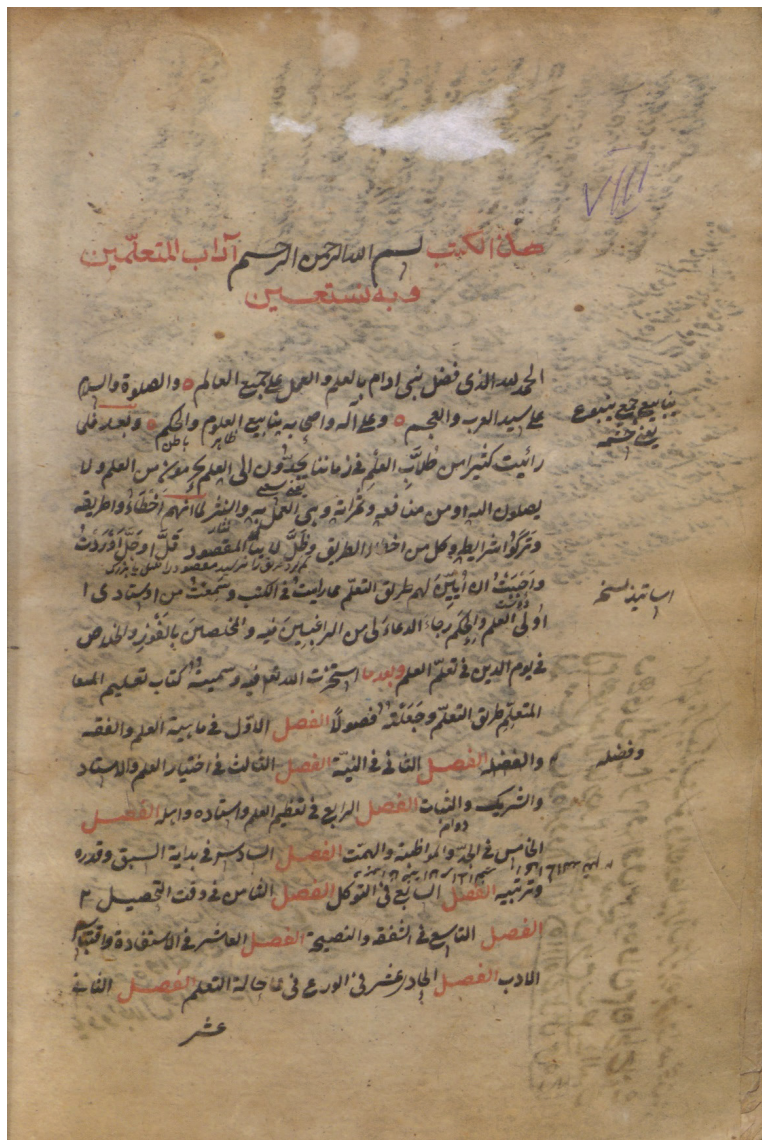 VIII
هذا الكتب بسم الله الرحمن الرحيم آداب المتعلّمين
وبه نستعين
الحمد لله الذى فضل بنى ادام بالعلم والعمل على جميع العالم والصلوة والسلام
على سيد العرب والعجم وعلى آله واصحابه ينابيع العلوم والحكم وبعد فلما
ينابيع جمع ينبوع
يعنى چشمه
ظاهر باطن
رائيت كثيرا من طلاب العلم فى زماننا يجدّون الى العلم من العلم ولا
يصلون اليه او من منافعه وثمراته وهى العمل به والنشر لما انهم اخطاءُوا طريقه
وتركوا شرايطه وكل من اخطاء الطريق وظلَّ لا ينال المقصود قلَّ او جلَّ اوردت
واحببت ان أبيّن لهم طريق التعلّم ما رايت فى الكتب وسمعت من اوستادى ا
اساتيذ نسخه
اولى العلم والحكم رجاء الدعاء لى من الراغبين فيه والمخلصين بالفوز والخلاص
فى يوم الدين فى تعلّم العلم وبعد ما استخرت الله تعا فيه وسميته كتاب تعليم المتعا
المتعلّم طريق التعلّم وجعلته فصولاً الفصل الاوّل فى ماهية العلم والفقه
والفضله الفصل الثانى فى النيّة الفصل الثالث فى اختيار العلم والاستاد
وفضله
والشريك والثبات الفصل الرابع فى تعظيم العلم واستاده واهله الفصل
دوام
الخامس فى الجدّ والمواظبة والهمّت الفصل السادس فى بداية السبق وقدره
وترتيبه الفصل السابع فى التوكل الفصل الثامن فى وقت التحصيل ٢
الفصل التاسع فى الشفقه والنصيحة الفصل العاشر فى الاستفادة واقتباس
الادب الفصل الحادى عشر فى الورع فى حالة التعلم الفصل الثانى
عشر